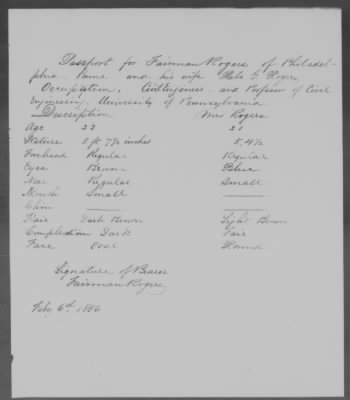 Passport for Fairman Rogers of Philadel-
phia Penna. and his wife G. Rogers
Occupation. Civil Engineer and Professor of Civil
Engineering, University of Pennsylvania
Description Mrs Rogers
Age 22 21
Stature 5 ft. 7½ inches 5,4½
Forehead Regular Regular
Eyes Brown Blue
Nose Regular Small
Mouth Small
Chin
Hair Dark Brown Light Brown
Complexion Dark Fair
Face Oval Round
Signature of Bearer
Fairman Rogers
Feby 6th, 1856